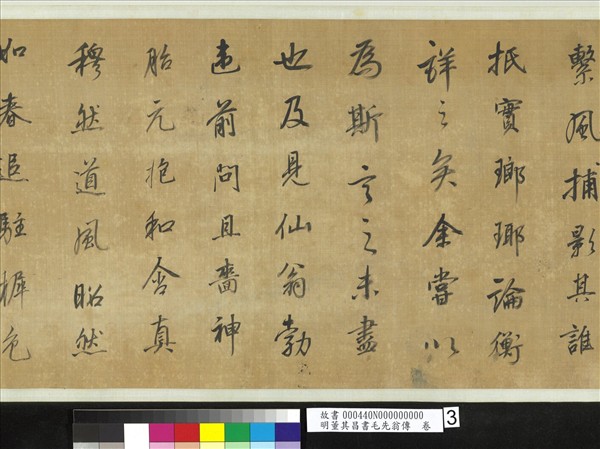 繫風捕影其誰
抵實瑯琊論衡
詳之矣余嘗以
為斯言之未盡
也及見仙翁勃
遠前問且嗇神
胎元抱和含真
穆然道風昭然
如春追駐樨色
故書 000440N000000000
明董其昌書毛先翁傳 卷
3